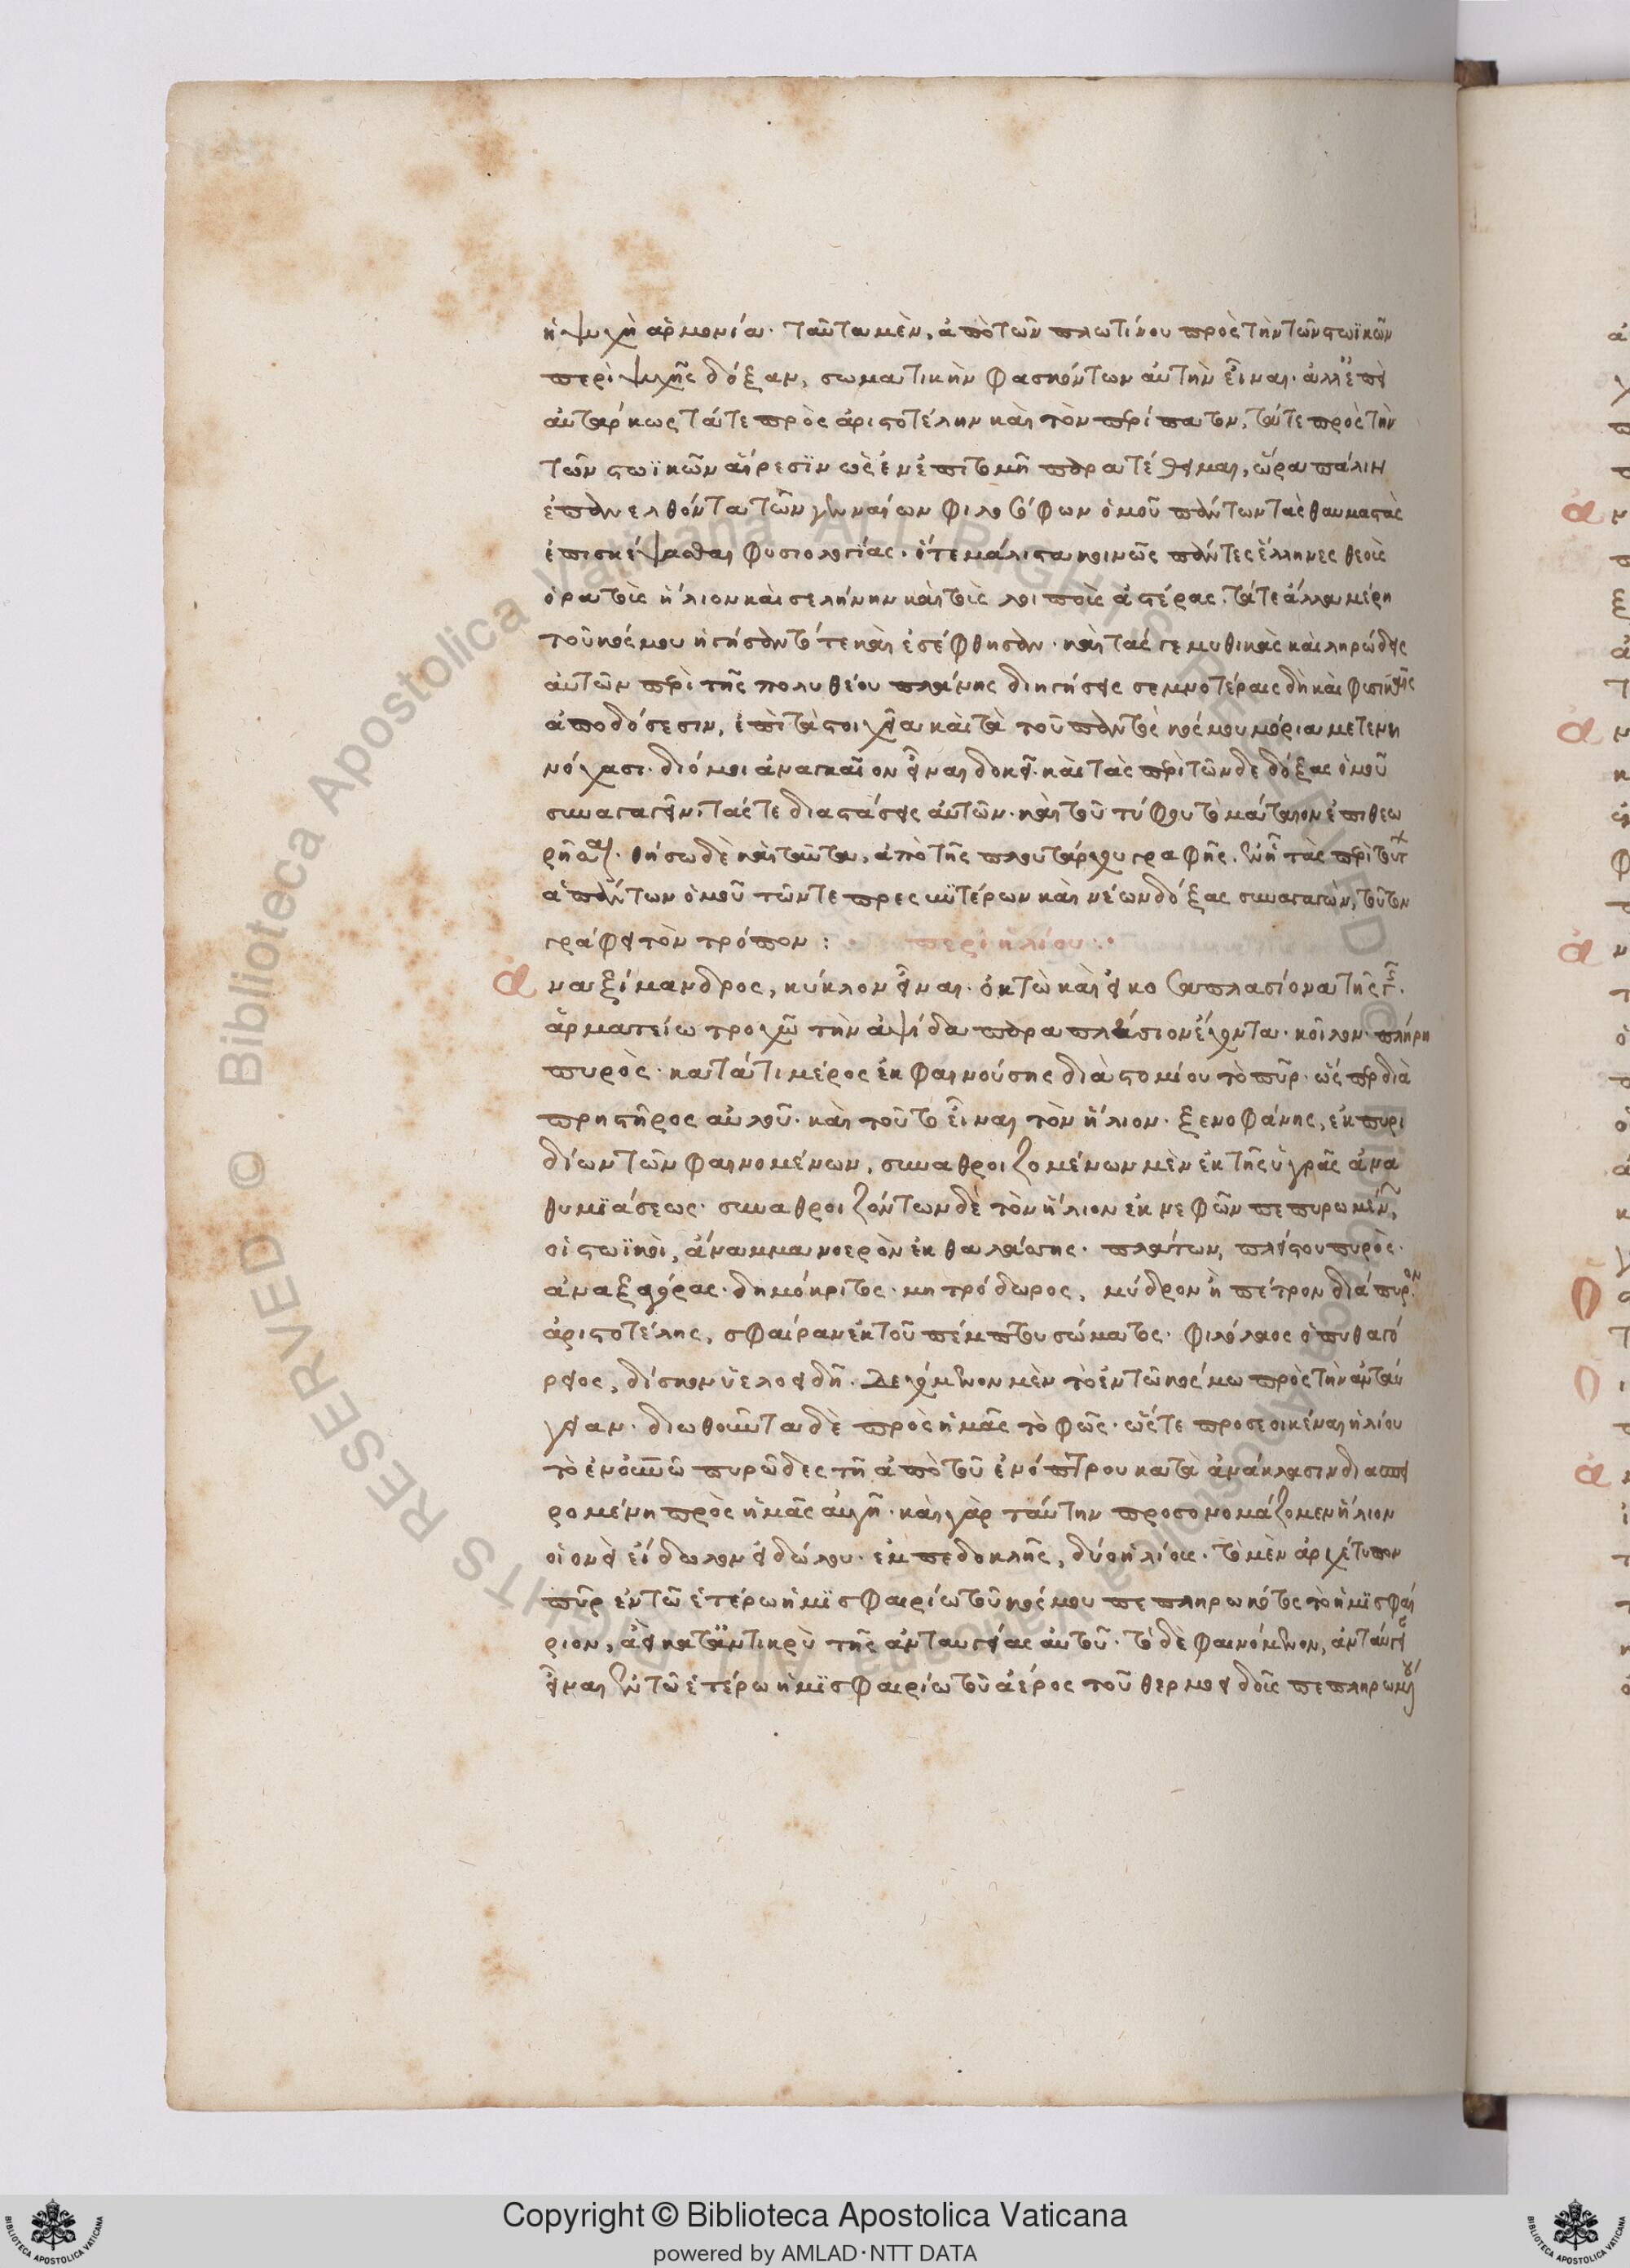 ἡ ψυχὴ ἁρμονία· ταῦτα μὲν, ἀπὸ τῶν πλωτίνου πρὸς τὴν τῶν στωϊκῶν
περὶ ψυχῆς δόξαν, σωματικὴν φασκόντων αὐτὴν εἶναι· ἀλλ' ἐπεὶ
αὐτάρκως τά τε πρὸς ἀριστοτέλην καὶ τὸν περίπατον, τά τε πρὸς τὴν
τῶν στωϊκῶν αἵρεσϊν ὡς ἐν ἐπιτομῆ παρατέθειμαι, ὥρα πάλιν
ἐπανελθόντα τῶν γενναίων φιλοσόφων ὁμοῦ πάντων τὰς θαυμαστὰς
ἐπισκέψασθαι φυσιολογίας· ὅτε μάλιστα κοινῶς πάντες ἕλληνες θεοὺς
ὁρατοὺς ἥλιον καὶ σελήνην καὶ τοὺς λοιποὺς ἀστέρας. τά τε ἄλλα μέρη
τοῦ κόσμου ἡγήσαντό τε καὶ ἐσέφθησαν· καὶ τάς γε μυθικὰς καὶ ληρώδεις
αὐτῶν περὶ τῆς πολυθέου πλάνης διηγήσεις σεμνοτέραις δὴ καὶ φυσικαῖς
ἀποδόσεσιν, ἐπὶ τὰ στοιχεῖα καὶ τὰ τοῦ παντὸς κόσμου μόρια μετενη
νόχασι· διό μοι ἀναγκαῖον εἶναι δοκεῖ· καὶ τὰς περὶ τῶνδε δόξας ὁμοῦ
συναγαγεῖν· τάς τε διαστάσεις αὐτῶν· καὶ τοῦ τύφου τὸ μάταιον ἐπιθεω
ρῆσαι· θήσω δὲ καὶ ταῦτα, ἀπὸ τῆς πλουτάρχου γραφῆς. ἐν ᾗ τὰς περὶ τούτ
ἁπάντων ὁμοῦ τῶν τε πρεσβϋτέρων καὶ νέων δόξας συναγαγὼν, τοῦτον
γράφει τὸν τρόπον : περὶ ἡλίου :·
ἀναξίμανδρος, κύκλον εἶναι· ὀκτὼ καὶ εἰκοσαπλασίονα τῆς γῆς.
ἁρματείω τροχῶ τὴν ἀψίδα παραπλάσιον ἔχοντα· κοῖλον· πλήρη
πυρὸς· κατά τι μέρος ἐκφαινούσης διὰ στομίου τὸ πῦρ· ὥσπερ διὰ
πρηστῆρος αὐλοῦ· καὶ τοῦτο εἶναι τὸν ἥλιον· ξενοφάνης, ἐκ πυρι
δίων τῶν φαινομένων, συναθροιζομένων μὲν ἐκ τῆς ὑγρᾶς ἀνα
θυμϊάσεως· συναθροιζόντων δὲ τὸν ἥλιον ἐκ νεφῶν πεπυρωμένων,
οἱ στωϊκοὶ, ἄναμμα νοερὸν ἐκ θαλάσσης· πλάτων, πλείστου πυρὸς·
ἀναξαγόρας· δημόκριτος· μητρόδωρος, μύδρον ἢ πέτρον διάπυρον
ἀριστοτέλης, σφαίραν ἐκ τοῦ πέμπτου σώματος· φιλόλαος ὁ πυθαγό
ρειος, δίσκον ὑελοειδῆ· δεχόμενον μὲν τὸ ἐν τῶ κόσμω πρὸς τὴν ἀνταύ
γειαν· διωθοῦντα δὲ πρὸς ἡμᾶς τὸ φῶς· ὥστε προσεοικέναι ἡλίου
τὸ ἐν οὐνῶ πυρῶδες τῆ ἀπὸ τοῦ ἐνόπτρου κατὰ ἀνάκλασιν διασπει
ρομένη πρὸς ἡμᾶς αὐγῆ· καὶ γὰρ ταύτην προσονομάζομεν ἥλιον
οἱονεὶ εἴδωλον εἰδώλου· ἐμπεδοκλῆς, δύο ἡλίους· τὸ μὲν ἀρχέτυπον
πῦρ ἐν τῶ ἑτέρω ἡμϊσφαιρίω τοῦ κόσμου πεπληρωκότος τὸ ἡμϊσφαί
ριον, ἀεὶ καταντικρὺ τῆς ἀνταυγείας αὐτοῦ· τὸ δὲ φαινόμενον, ἀνταύγει
εἶναι ἐν τῶ ἑτέρω ἡμϊσφαιρίω τοῦ ἀέρος τοῦ θερμοειδοῦς πεπληρωμένου